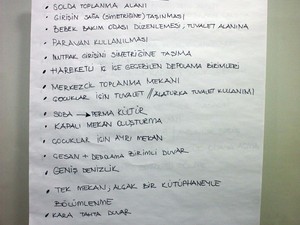 • SOLDA TOPLANMA ALANI
• GİRİŞİN SAĞA (SİMETRİĞİNE) TAŞINMASI
• BEBEK BAKIM ODASI DÜZENLEMESİ, TUVALET ALANINA
• PARAVAN KULLANILMASI
• MUTFAK GİRİŞİNİ SİMETRİĞİNE TAŞIMA
• HAREKETLİ İÇ İÇE GEÇİRİLEN DEPOLAMA BİRİMLERİ
• MERKEZCİL TOPLANMA MEKANI
• ÇOCUKLAR İÇİN TUVALET // ALATURKA TUVALET KULLANIMI
• SOBA → TERMAL KÜTÜR
• KAPALI MEKAN OLUŞTURMA
• ÇOCUKLAR İÇİN AYRI MEKAN
• + DEPOLAMA BİRİMLİ DUVAR
• GENİŞ DENİZLİK
• TEK MEKANI, ALÇAK BİR KÜTÜPHANEYLE
BÖLÜMLENME
• KARA TAHTA DUVAR